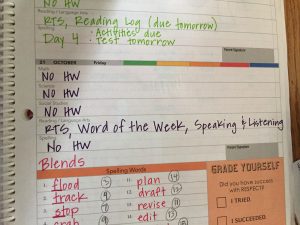 No HW
Reading / Language Arts
RTS, Reading Log (due tomorrow)
Spelling
Day 4 : Activities due
: Test tomorrow
Parent Signature
21 OCTOBER Friday
Math
No HW
Science
No HW
Social Studies
No HW
Reading / Language Arts
RTS, Word of the Week, Speaking & Listening
Spelling
No HW
Parent Signature
Blends
Spelling Words
1. flood 3
2. track 4
3. stop
11. plan 14
12. draft 13
13. revise 11
14. edit
GRADE YOURSELF
Did you have success
with RESPECT?
I TRIED.
I SUCCEEDED.